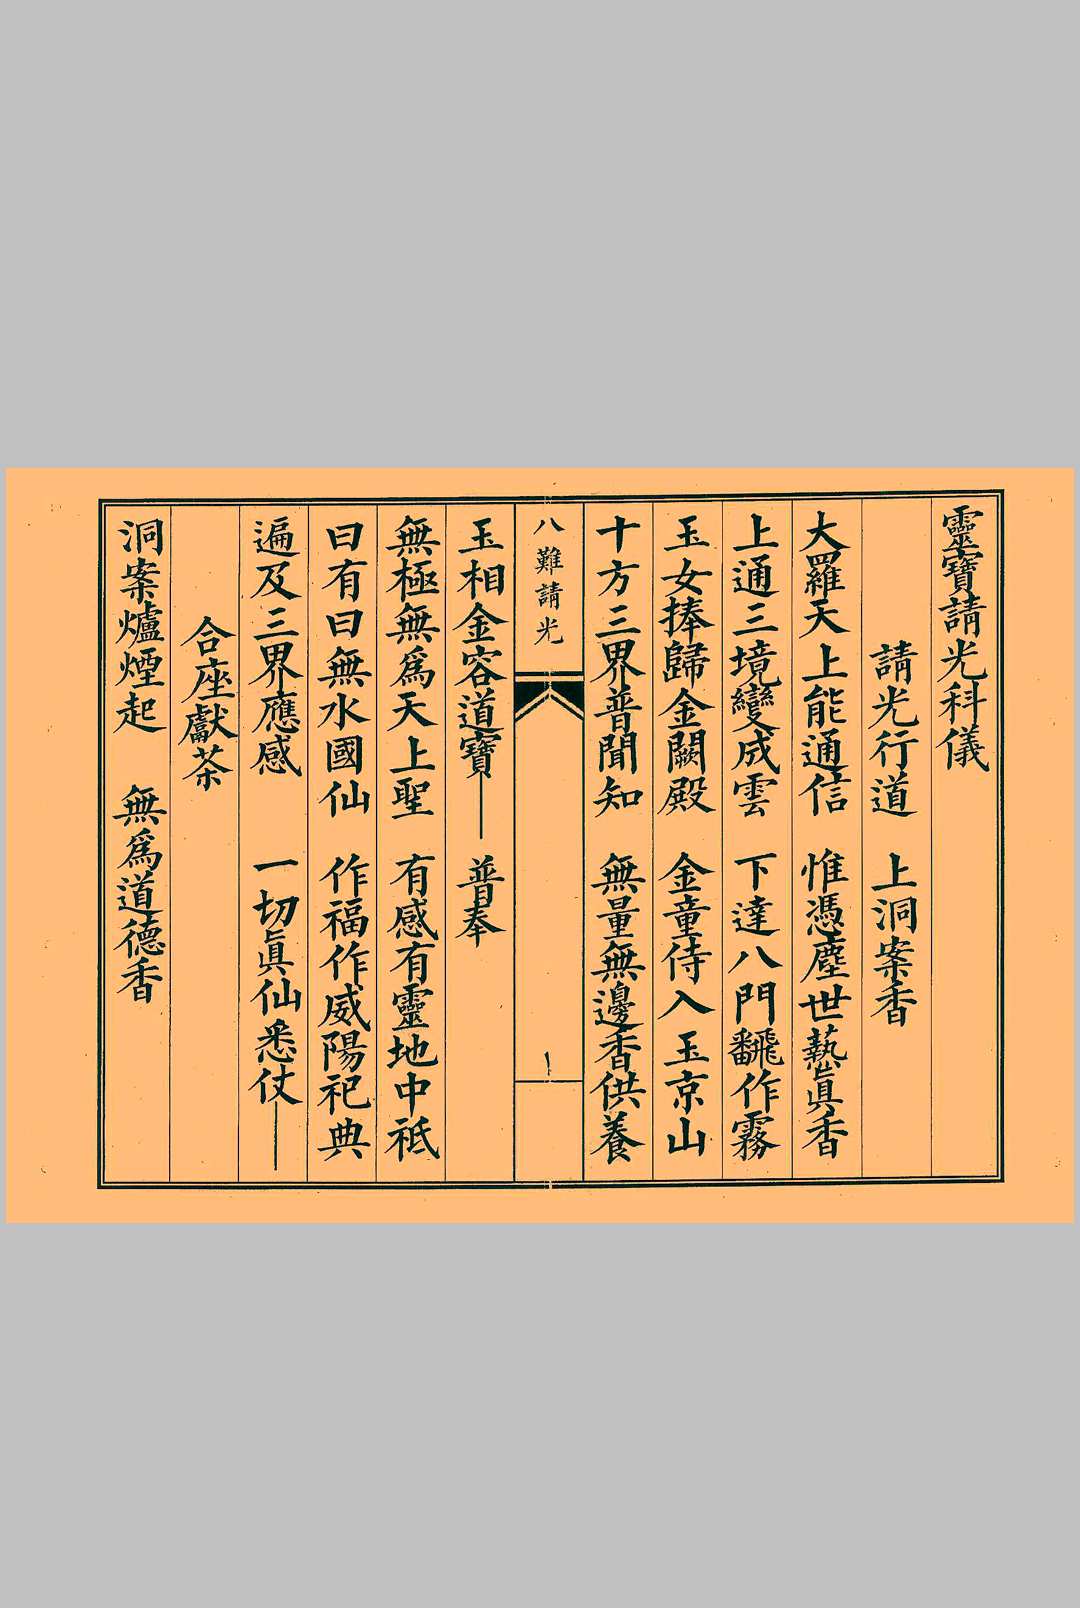 靈寶請光科儀
請光行道　上洞案香
大羅天上能通信　惟憑塵世爇眞香
上通三境變成雲　下達八門飜作霧
玉女捧歸金闕殿　金童侍入玉京山
十方三界普聞知　無量無邊香供養
八難請光
一
玉相金容道寶——普奉
無極無爲天上聖　有感有靈地中祇
曰有曰無水國仙　作福作威陽祀典
遍及三界應感　一切眞仙悉仗——
合座獻茶
洞案爐煙起　無爲道德香